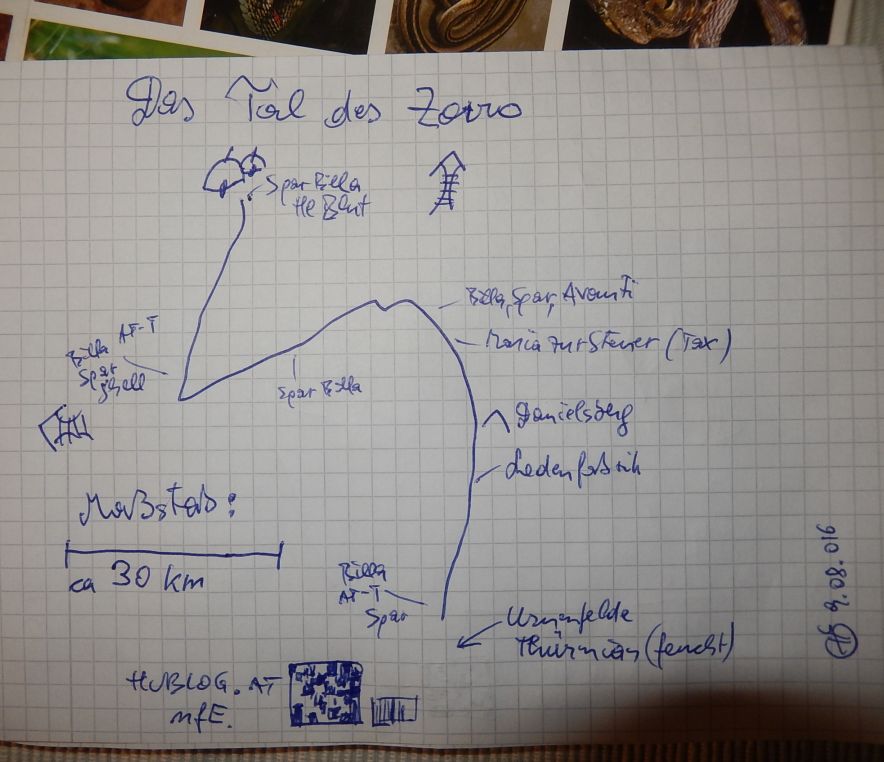 Das Tal des Zorro
Spar Billa
Hl Blut
Billa, Spar, Avanti
Maria zur Steuer (Tax)
Billa AT-T
Spar
Spar Billa
Danielsberg
Lodenfabrik
Maßstab:
ca 30 km
Billa
AT-T
Spar
Urnenfelde
(feucht)
HUBLOG.AT
mfE.
9.08.016